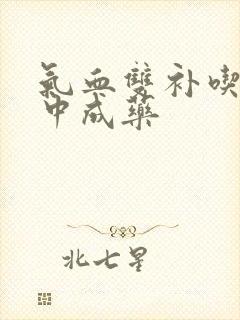 氣血雙补喫
中成藥
北七星